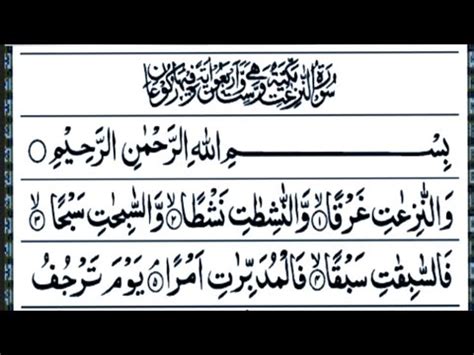 سُوْرَةُ النّٰزِعٰتِ مَكِّيَّةٌ وَّهِيَ سِتٌّ وَّاَرْبَعُوْنَ اٰيَةً وَّفِيْهَا رُكُوْعَانِ
بِسْــــــمِ اللّٰهِ الرَّحْمٰنِ الرَّحِيْمِ ○
وَالنّٰزِعٰتِ غَرْقًا ۙ﴿۱﴾ وَّالنّٰشِطٰتِ نَشْطًا ۙ﴿۲﴾ وَّالسّٰبِحٰتِ سَبْحًا ۙ﴿۳﴾
فَالسّٰبِقٰتِ سَبْقًا ۙ﴿۴﴾ فَالْمُدَبِّرٰتِ اَمْرًا ۘ﴿۵﴾ يَوْمَ تَرْجُفُ